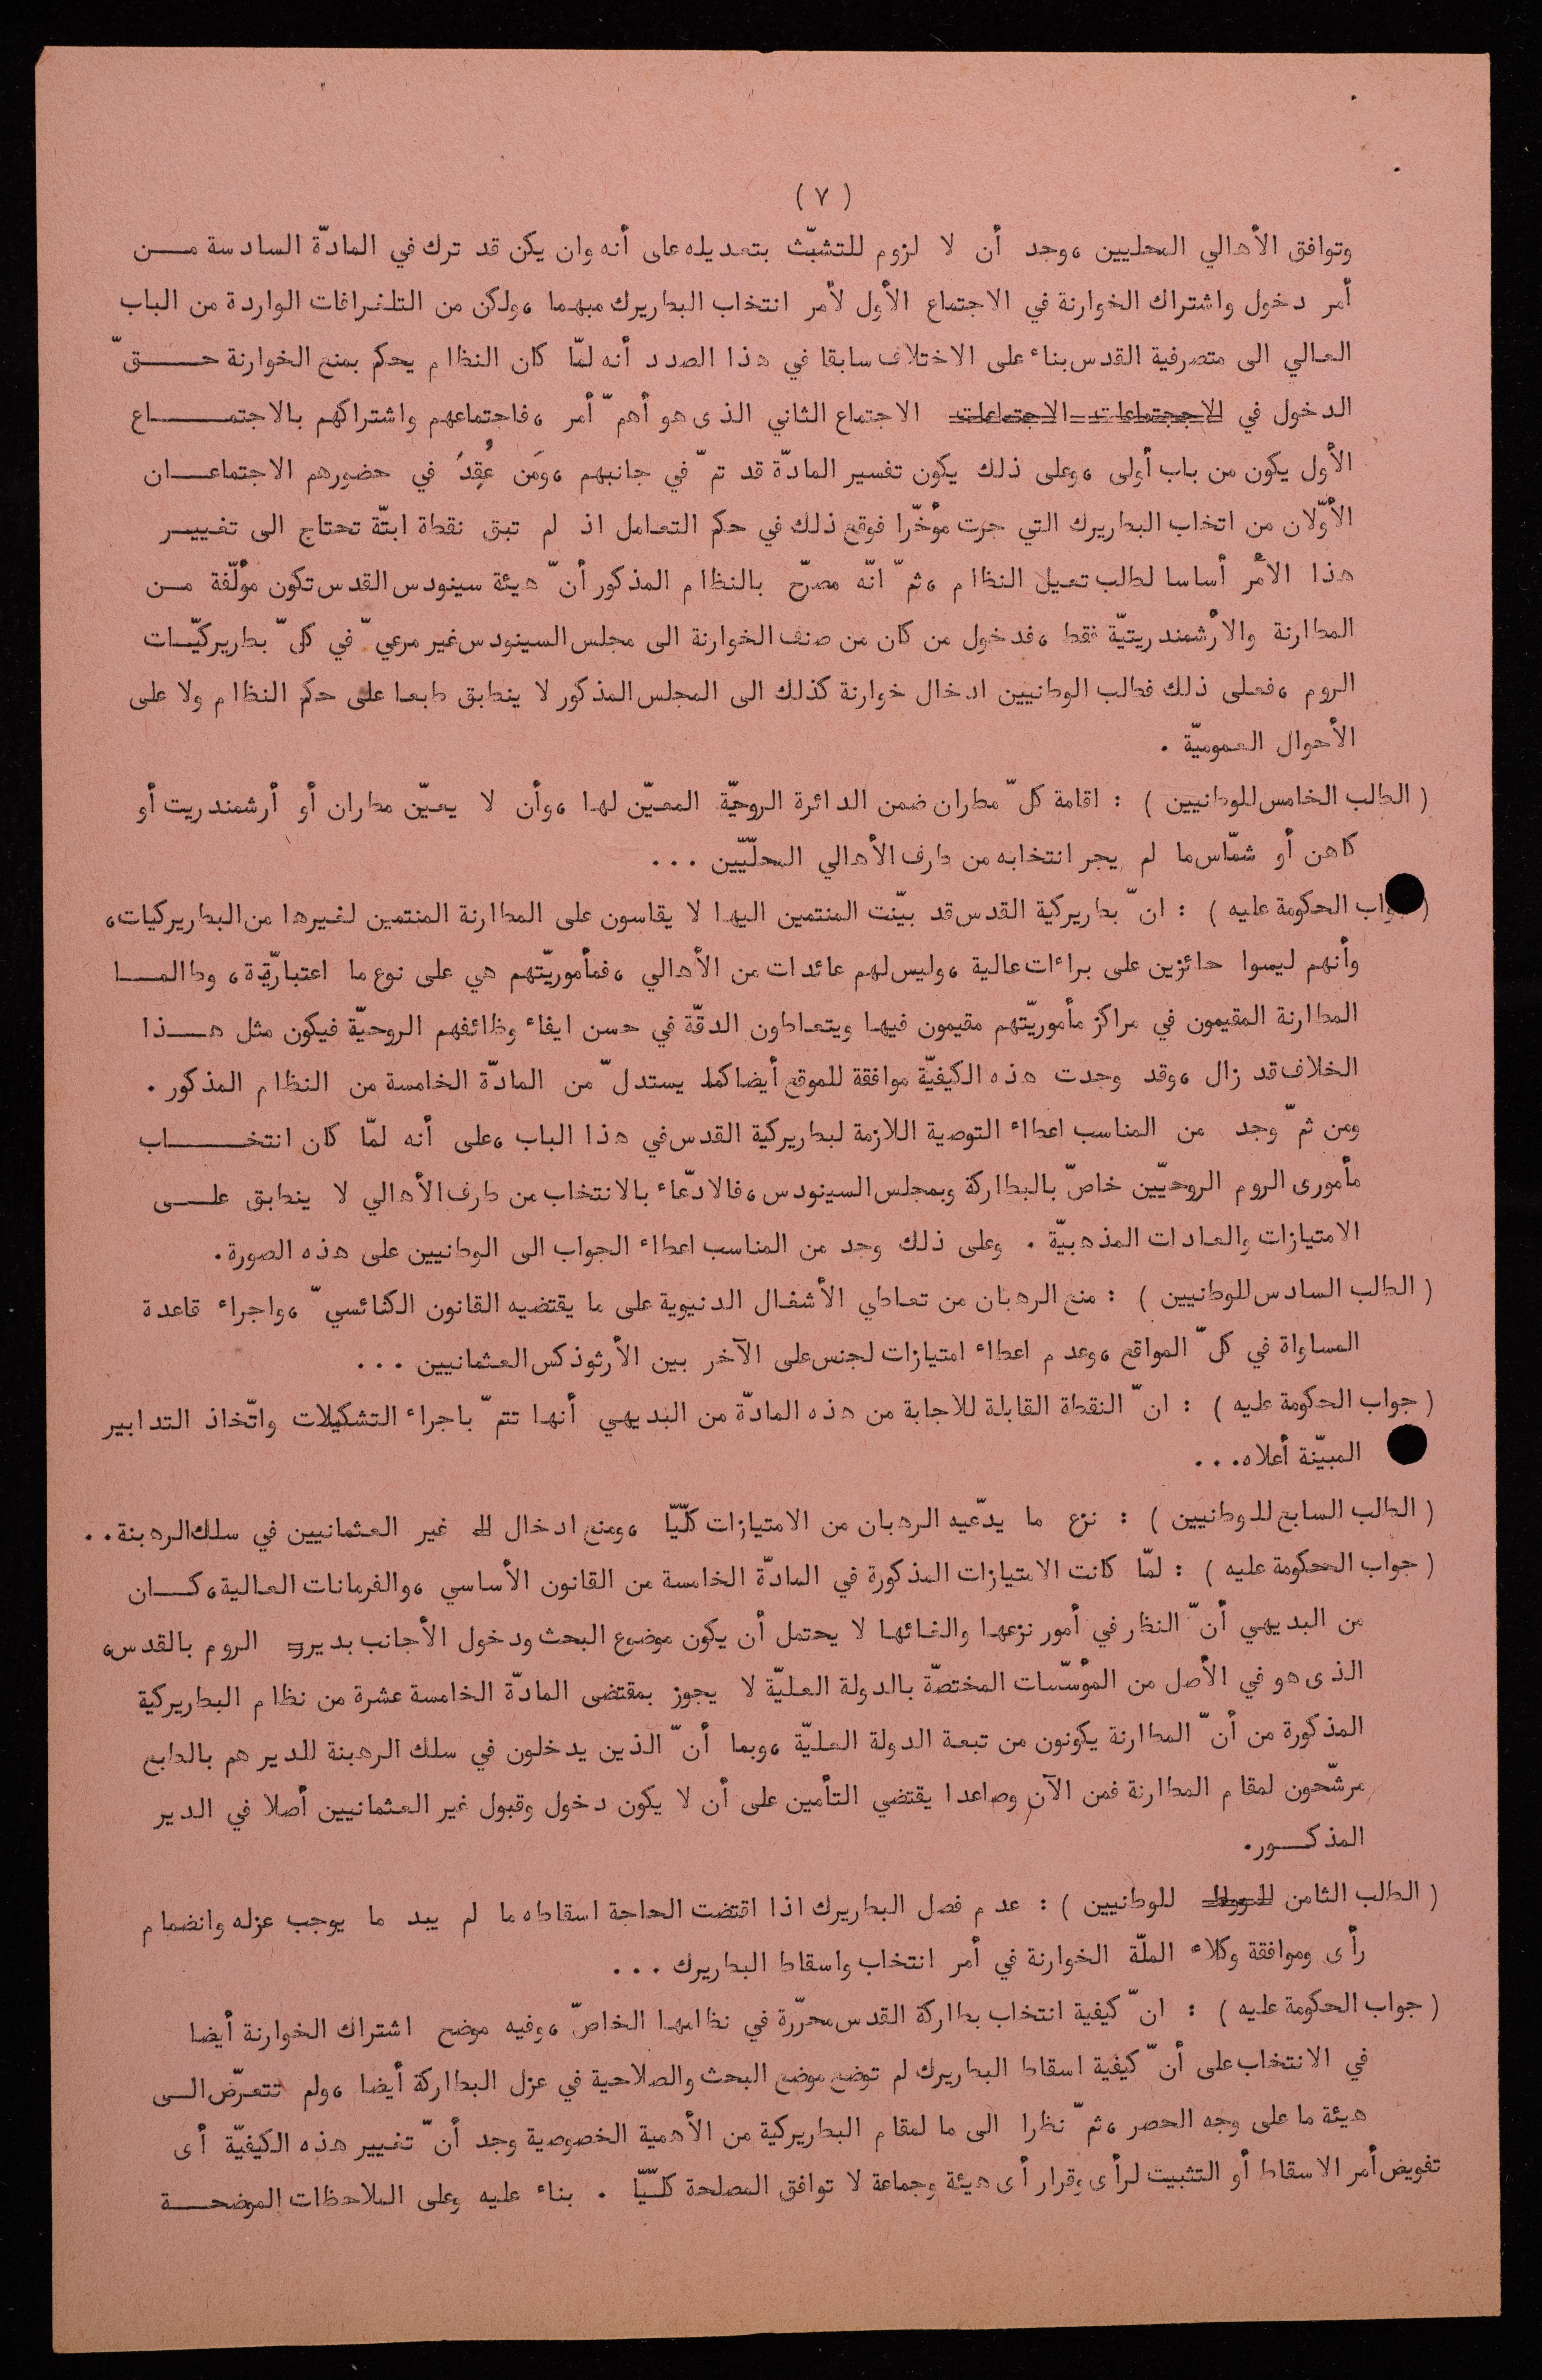 ( ٧ )
وتوافق الأهالي المحليين ،وجد أن لا لزوم للتشبّث بتعديله على أنه وان يكن قد ترك في المادّة السادسة مــن
أمر دخول واشتراك الخوارنة في الاجتماع الأول لأمر انتخاب البطريرك مبهما ،ولكن من التلغرافات الواردة من الباب
العالي الى متصرفية القدس بناء على الاختلاف سابقا في هذا الصدد أنه لمّا كان النظام يحكم بمنع الخوارنة حــــقّ
الدخول في الاججتماعات الاجتماعات الاجتماع الثاني الذى هو أهمّ أمر ،فاجتماعهم واشتراكهم بالاجتمــــاع
الأول يكون من باب أولى ،وعلى ذلك يكون تفسير المادّة قد تمّ في جانبهم ،ومَن عُقِدَ في حضورهم الاجتماعــان
الأوّلان من اتخاب البطريرك التي جرت مؤخّرا فوقع ذلك في حكم التعامل اذ لم تبق نقطة ابتّة تحتاج الى تغييــر
هذا الأمر أساسا لطلب تعيل النظام ،ثمّ انّه مصرّح بالنظام المذكور أنّ هيئة سينودس القدس تكون مؤلّفة مــن
المطارنة والأرشمندريتيّة فقط ،فدخول من كان من صنف الخوارنة الى مجلس السينودس غير مرعيّ في كلّ بطريركيّــات
الروم ،فعلى ذلك فطلب الوطنيين ادخال خوارنة كذلك الى المجلس المذكور لا ينطبق طبعا على حكم النظام ولا على
الأحوال العموميّة .
( الطلب الخامس للوطنيين ) : اقامة كلّ مطران ضمن الدائرة الروحيّة المعيّن لها ،وأن لا يعيّن مطران أو أرشمندريت أو
كاهن أو شمّاس ما لم يجر انتخابه من طرف الأهالي المحلّيّين ...
( جواب الحكومة عليه ) : انّ بطريركية القدس قد بيّنت المنتمين اليها لا يقاسون على المطارنة المنتمين لغيرها من البطريركيات،
وأنهم ليسوا حائزين على براءات عالية ،وليس لهم عائدات من الأهالي ،فمأموريّتهم هي على نوع ما اعتباريّة، وطالمـــا
المطارنة المقيمون في مراكز مأموريّتهم مقيمون فيها ويتعاطون الدقّة في حسن ايفاء وظائفهم الروحيّة فيكون مثل هـــذا
الخلاف قد زال ،وقد وجدت هذه الكيفيّة موافقة للموقع أيضا كما يستدلّ من المادّة الخامسة من النظام المذكور .
ومن ثمّ وجد من المناسب اعطاء التوصية اللازمة لبطريركية القدس في هذا الباب ،على أنه لمّا كان انتخــــاب
مأمورى الروم الروحيّين خاصّ بالبطاركة وبمجلس السينودس ،فالادّعاء بالانتخاب من طرف الأهالي لا ينطبق علــى
الامتيازات والعادات المذهبيّة . وعلى ذلك وجد من المناسب اعطاء الجواب الى الوطنيين على هذه الصورة .
( الطلب السادس للوطنيين ) : منع الرهبان من تعاطي الأشغال الدنيوية على ما يقتضيه القانون الكنائسيّ ،واجراء قاعدة
المساواة في كلّ المواقع ،وعدم اعطاء امتيازات لجنس على الآخر بين الأرثوذكس العثمانيين ...
( جواب الحكومة عليه ) : انّ النقطة القابلة للاجابة من هذه المادّة من البديهي أنها تتمّ باجراء التشكيلات واتّخاذ التدابير
المبيّنة أعلاه...
( الطلب السابع للوطنيين ) : نزع ما يدّعيه الرهبان من الامتيازات كلّيّا ،ومنع ادخال غير العثمانيين في سلك الرهبنة ..
( جواب الحكومة عليه ) : لمّا كانت الامتيازات المذكورة في المادّة الخامسة من القانون الأساسي ،والفرمانات العالية، كــان
من البديهي أنّ النظر في أمور نزعها والغائها لا يحتمل أن يكون موضوع البحث ودخول الأجانب بدير الروم بالقدس،
الذى هو في الأصل من المؤسّسات المختصّة بالدولة العليّة لا يجوز بمقتضى المادّة الخامسة عشرة من نظام البطريركية
المذكورة من أنّ المطارنة يكونون من تبعة الدولة العليّة ،وبما أنّ الذين يدخلون في سلك الرهبنة للدير هم بالطبع
مرشّحون لمقام المطارنة فمن الآن وصاعدا يقتضي التأمين على أن لا يكون دخول وقبول غير العثمانيين أصلا في الدير
المذكــور.
( الطلب الثامن للوطنيين ) : عدم فصل البطريرك اذا اقتضت الحاجة اسقاطه ما لم يبد ما يوجب عزله وانضمام
رأى وموافقة وكلاء الملّة الخوارنة في أمر انتخاب واسقاط البطريرك ...
( جواب الحكومة عليه ) : انّ كيفية انتخاب بطاركة القدس محرّرة في نظامها الخاصّ ،وفيه موضح اشتراك الخوارنة أيضا
في الانتخاب على أنّ كيفية اسقاط البطريرك لم توضع موضع البحث والصلاحية في عزل البطاركة أيضا ،ولم تتعرّض الــى
هيئة ما على وجه الحصر ،ثمّ نظرا الى ما لمقام البطريركية من الأهمية الخصوصية وجد أنّ تغيير هذه الكيفيّة أى
تفويض أمر الاسقاط أو التثبيت لرأى وقرار أى هيئة وجماعة لا توافق المصلحة كلّيّا . بناء عليه وعلى الملاحظات الموضحـــة